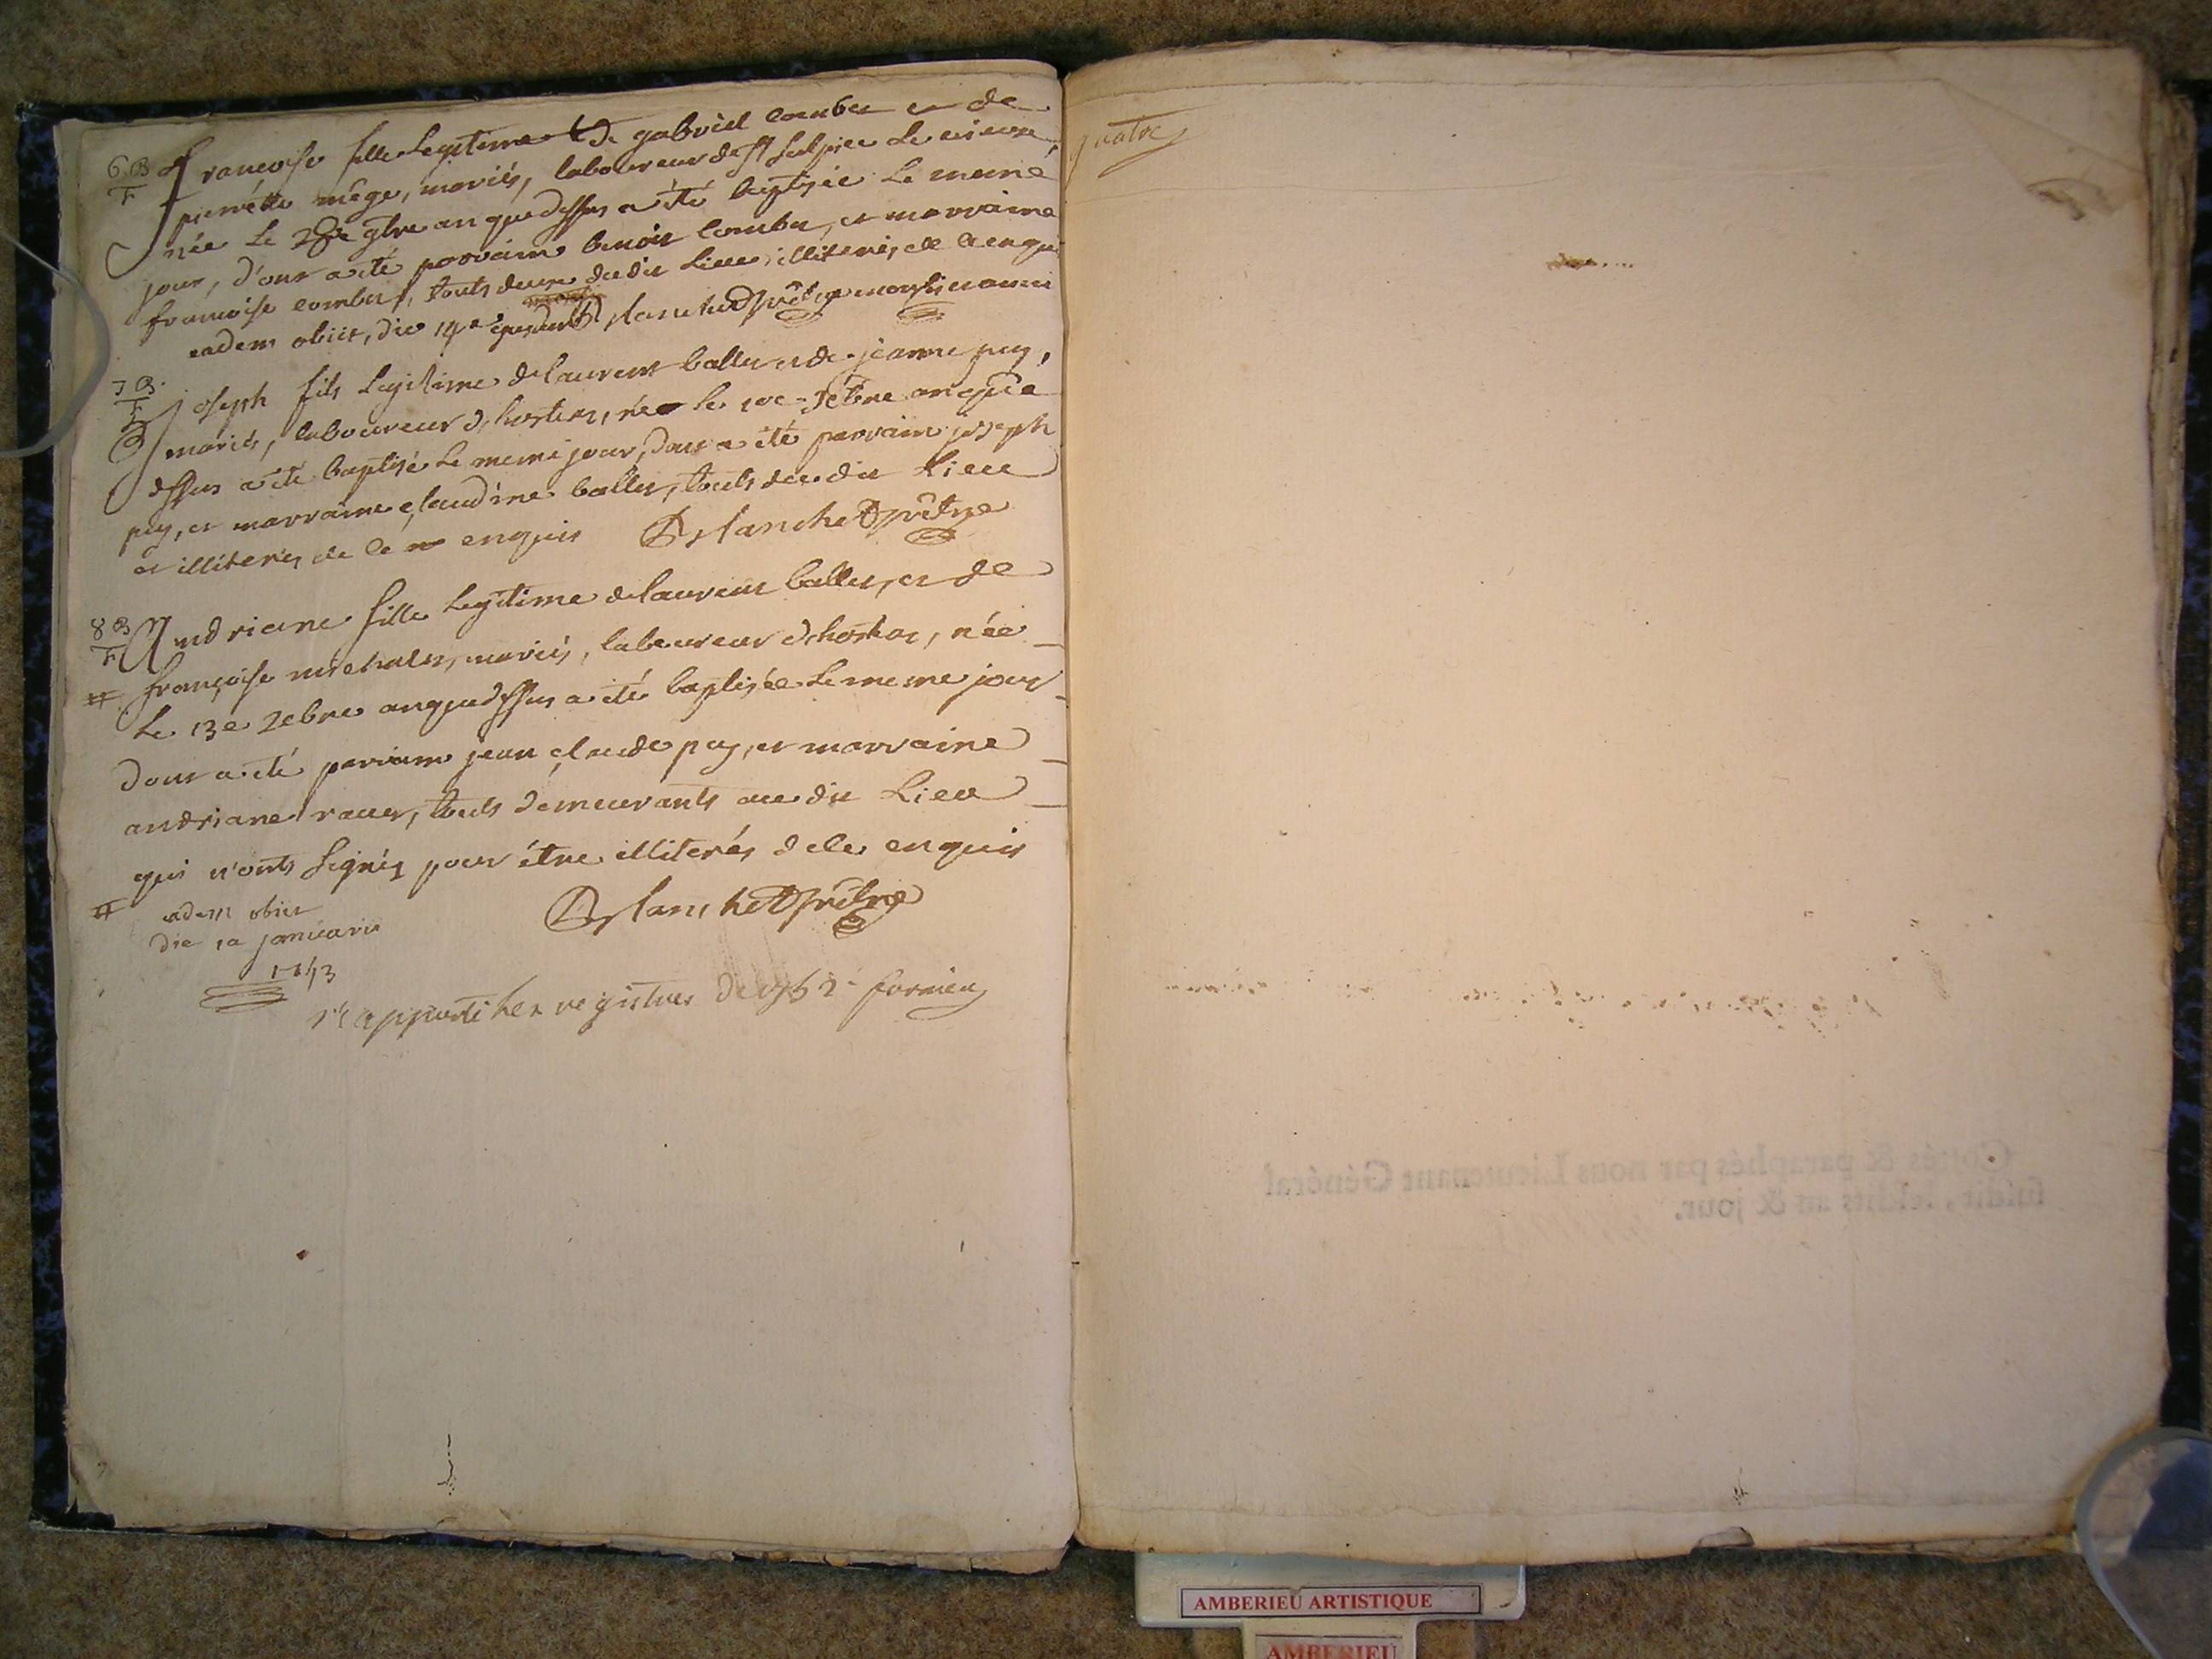 6 B françoise fille legitime de gabriel combet et de
F pierrette mége, mariés, laboureur de St Sulpice Le vieux,
née Le 28e 9bre an que dessus a été baptisée Le meme
jour, d'ont a été parrain benoit combet, et marraine
françoise combet, touts deux du dit Lieu, illiterés de ce enquis
eadem obiit, die 14a Planchet prêtre
7 B Joseph fils Legitime de laurent ballet et de jeanne puy,
F mariés, laboureur d'hostias, né le 10e Xebre an que
dessus a été baptisé Le meme jour, dont a été parrain joseph
puy, et marraine claudine ballet, touts du dit Lieu
et illiterés de ce enquis Planchet prêtre
8 B Andriane fille Legitime de laurent ballet, et de
F françoise michalet, mariés, laboureur d'hostias, née
Le 13e Xebre an que dessus a été baptisée Le meme jour
dont a été parrain jean claude puy, et marraine
andriane taux, touts demeurants au dit Lieu
qui n'onts Signés pour être illiterés de ce enquis
eadem obiit Planchet prêtre
die 1a januarii
1743
registres
quatre
Cottés & paraphés par nous Lieutenant Général
susdit, lesdits an & jour.
AMBERIEU ARTISTIQUE
AMBERIEU